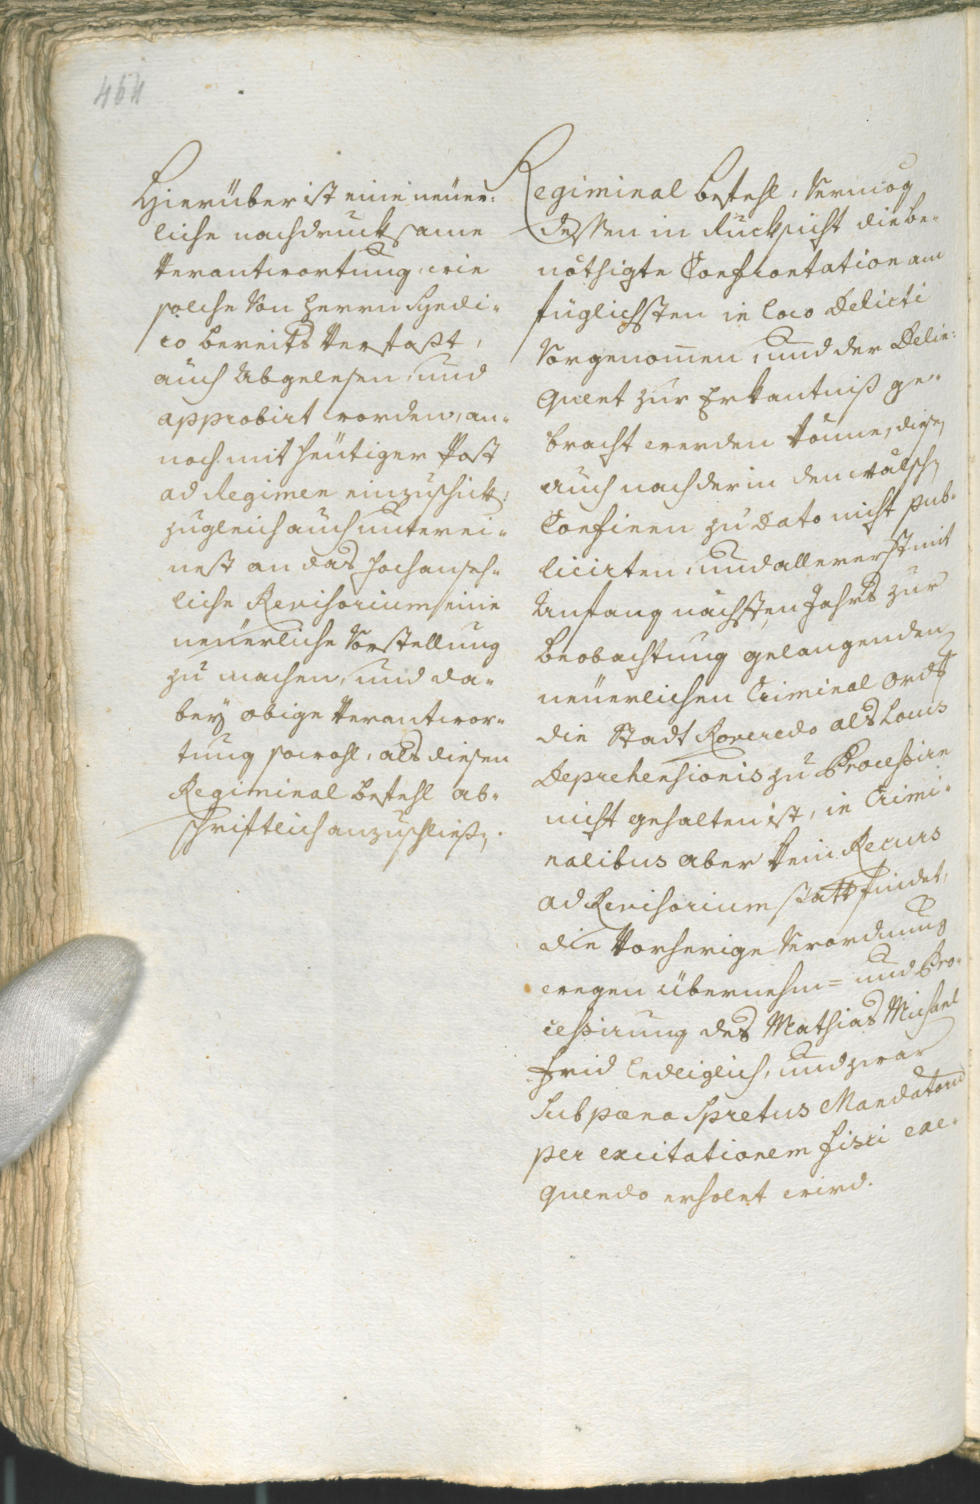 464
Hierüber ist eine neuer-
liche nachdrucksame
Verantwortung, wie
solche von Herrn Syndi-
co bereits verfasst,
auch abgelesen, und
approbirt worden, an-
noch mit heutiger Post
ad Regimen einzuschick,
zugleich auch unterei-
nest an das hochanseh-
liche Revisorium eine
neuerliche Vorstellung
zu machen, und da-
bey obige Verantwor-
tung sowohl, als diesen
Regiminal befehl ab-
schriftlich anzuschließ.
Regiminal befehl, vermög
dessen in Rucksicht die be-
nöthigte Confrontation am
füglichsten in Loco Delicti
vorgenomen, und der Delin-
quent zur Erkantniß ge-
bracht werden könne, dise
auch nach der in den wälsch
Confinen zu Dato nicht pub-
licirten, und allererst mit
Anfang nächsten Jahrs zur
beobachtung gelangenden
neuerlichen Criminal Ords
die Stadt Roveredo als Locus
Deprehensionis zu Processire
nicht gehalten ist, in Crimi-
nalibus aber kein Recurs
ad Revisorium statt findet,
die vorherige Verordnung
wegen übernehm- und Pro-
cessirung des Mathias Michael
Frid lediglich, und zwar
sub poena Spretus Mandatorum
per excitationem fisci exe-
quendo erholet wird.